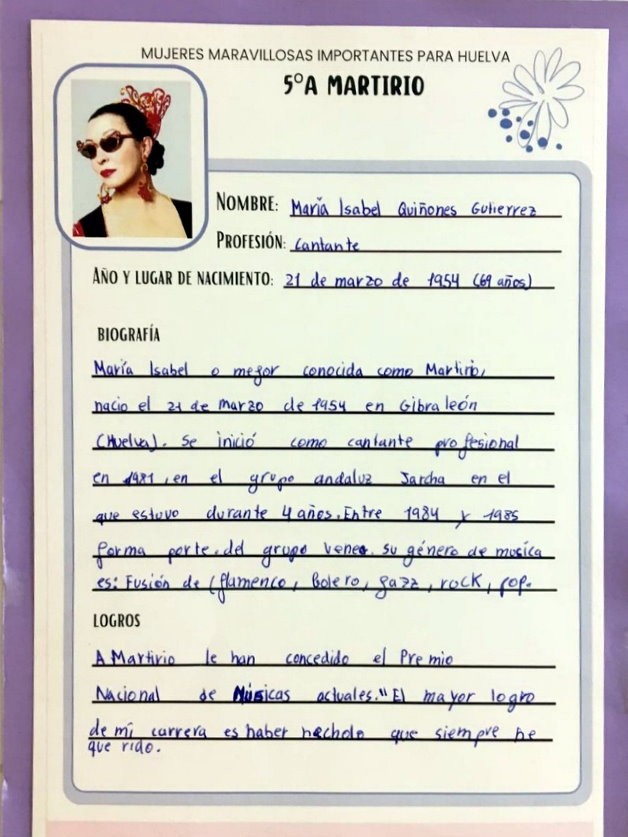 MUJERES MARAVILLOSAS IMPORTANTES PARA HUELVA
5ºA MARTIRIO
NOMBRE: María Isabel Quiñones Gutierrez
PROFESIÓN: Cantante
AÑO Y LUGAR DE NACIMIENTO: 21 de marzo de 1954 (69 años)
BIOGRAFÍA
María Isabel o mejor conocida como Martirio,
nacio el 21 de marzo de 1954 en Gibraleón
(Huelva). Se inició como cantante profesional
en 1981, en el grupo andaluz Jarcha en el
que estuvo durante 4 años. Entre 1984 y 1985
forma parte del grupo veneo. su género de musica
es: Fusión de (flamenco, Bolero, jazz, rock, pop.
LOGROS
A Martirio le han concedido el Premio
Nacional de Músicas actuales. "El mayor logro
de mi carrera es haber hecholo que siempre he
que rido.